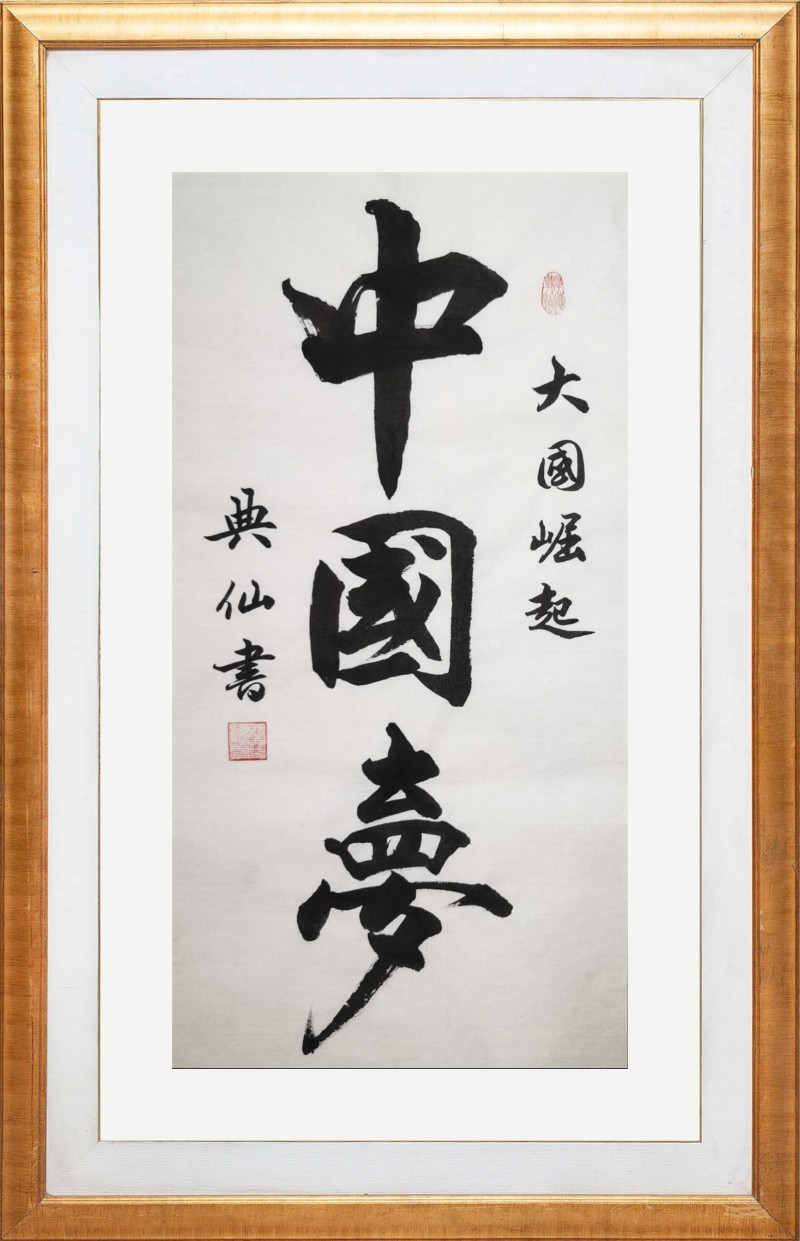 大國崛起
中國夢
典仙書